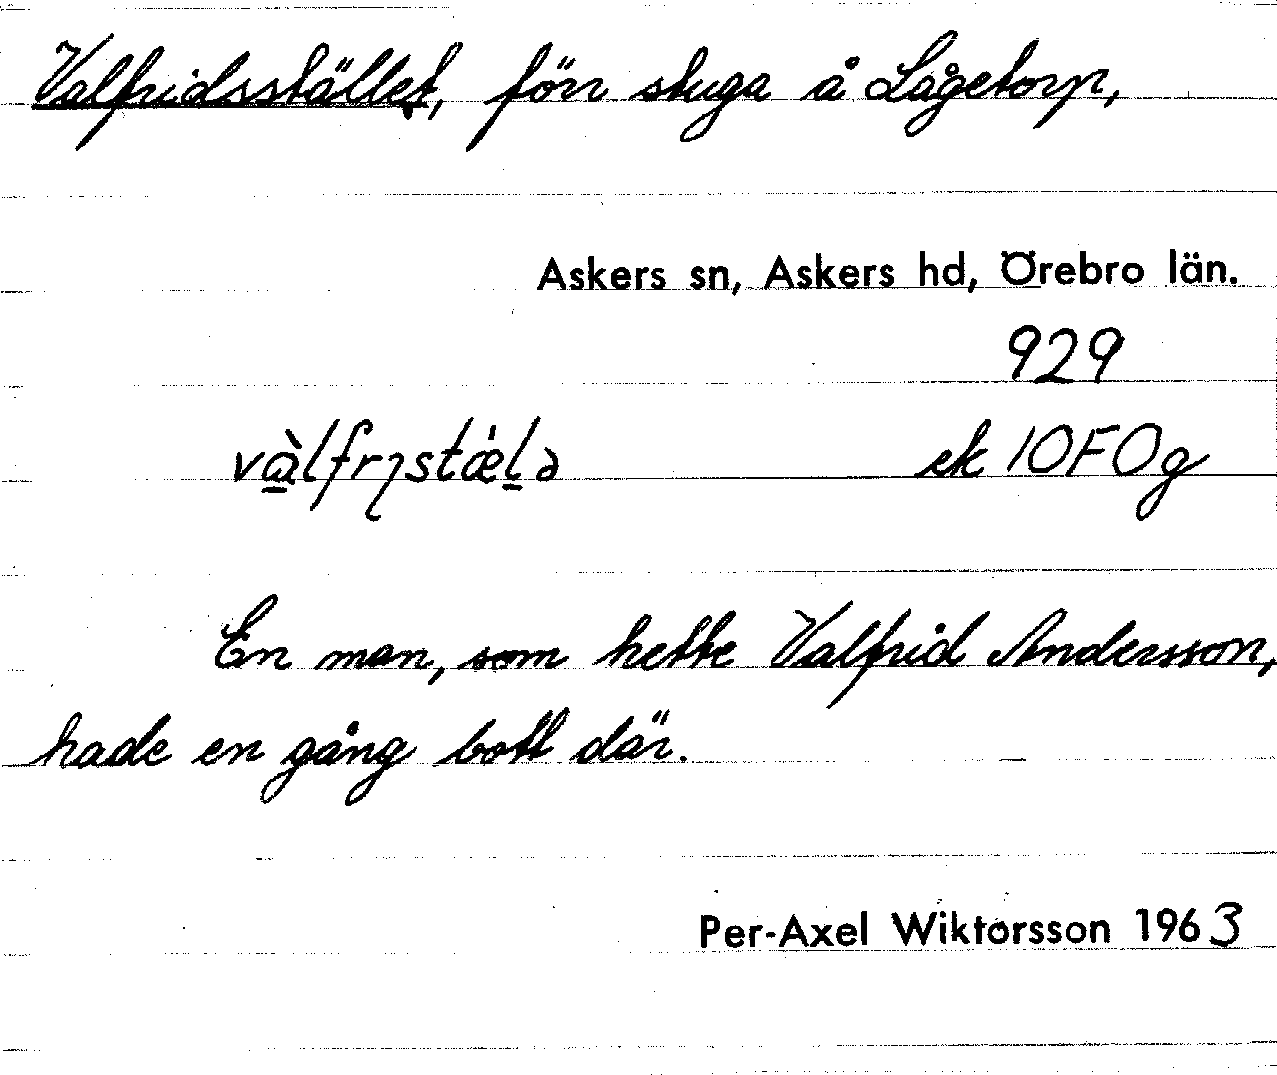 Valfridsstället, förr stuga å Lågetorp,
Askers sn, Askers hd, Örebro län.
929
ek 10F0g
En man, som hette Valfrid Andersson,
hade en gång bott där.
Per-Axel Wiktorsson 1963